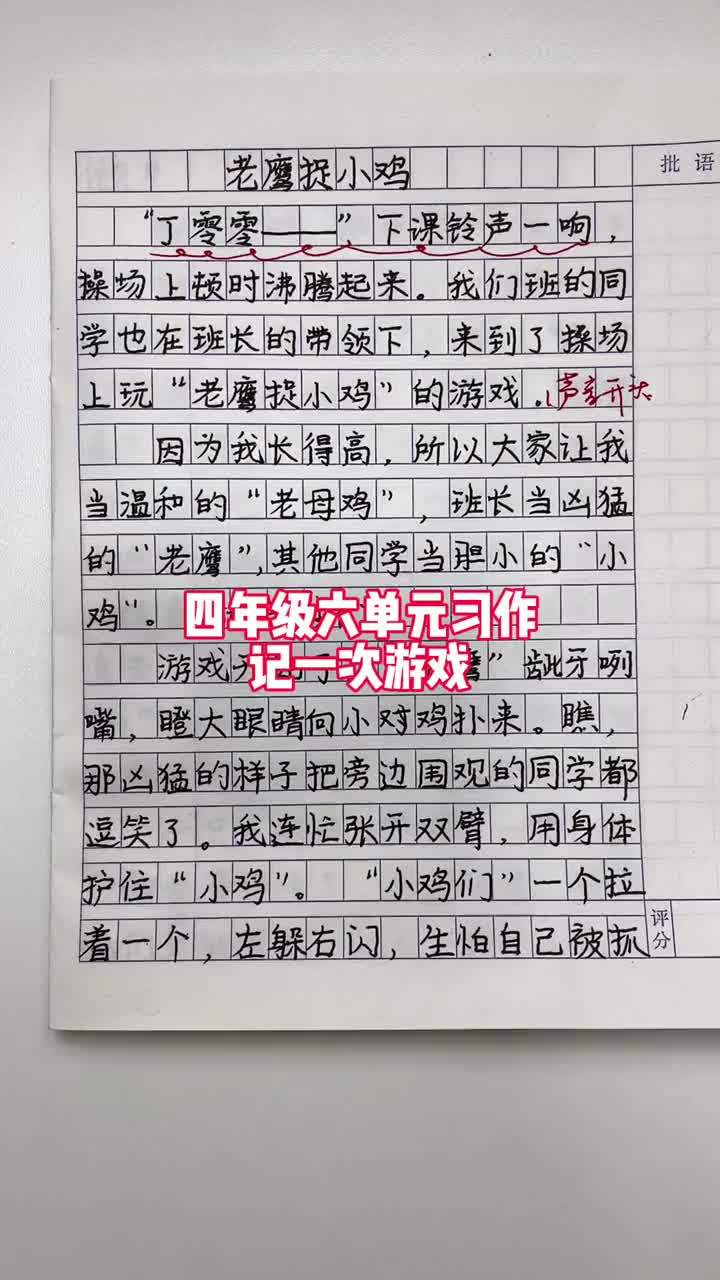 老鹰捉小鸡
批语
“丁零零——”，下课铃声一响，
操场上顿时沸腾起来。我们班的同
学也在班长的带领下，来到了操场
上玩“老鹰捉小鸡”的游戏。（声音开头
因为我长得高，所以大家让我
当温和的“老母鸡”，班长当凶猛
的“老鹰”，其他同学当胆小的“小
鸡”。
四年级六单元习作
记一次游戏
游戏 了 ”龇牙咧
嘴，瞪大眼睛向小对鸡扑来。瞧，
那凶猛的样子把旁边围观的同学都
逗笑了。我连忙张开双臂，用身体
护住“小鸡”。“小鸡们”一个拉
着一个，左躲右闪，生怕自己被抓
评分